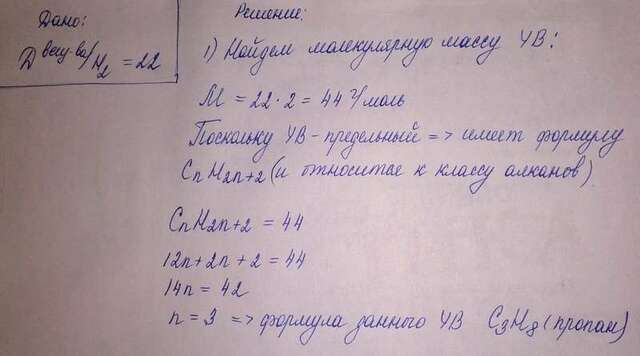 Дано:
D вещ-ва/H₂ = 22
Решение:
1) Найдем молекулярную массу УВ:
M = 22 · 2 = 44 г/моль
Поскольку УВ - предельный => имеет формулу
CnH2n+2 (и относится к классу алканов)
CnH2n+2 = 44
12n + 2n + 2 = 44
14n = 42
n = 3 => формула данного УВ C₃H₈ (пропан)